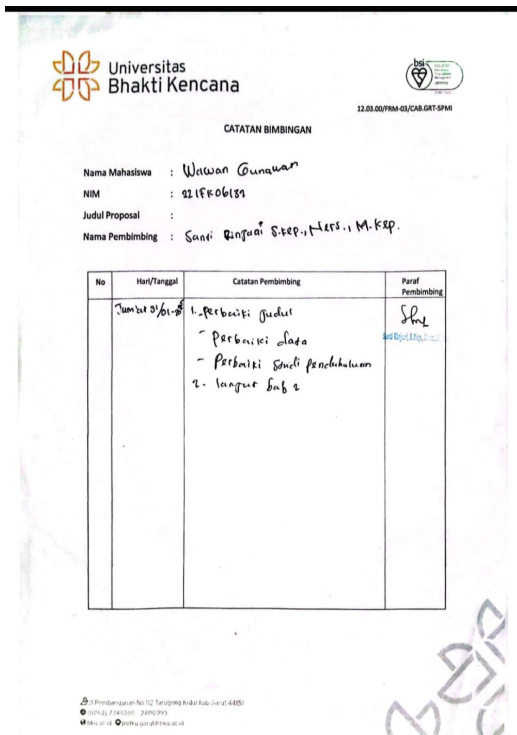 Universitas
Bhakti Kencana
bsi
12.03.00/FRM-03/CAB.GRT-SPMI
CATATAN BIMBINGAN
Nama Mahasiswa : Wawan Gunawan
NIM :
Judul Proposal :
Nama Pembimbing : Santi Rinjani S.Kep., Ners., M.Kep.
No Hari/Tanggal Catatan Pembimbing Paraf Pembimbing
Jum'at 31/01- 1. Perbaiki Judul
- Perbaiki data
- Perbaiki Studi pendahuluan
2. lanjut bab 2
Jl Pembangunan No 112 Tarogong Kidul Kab Garut 44151